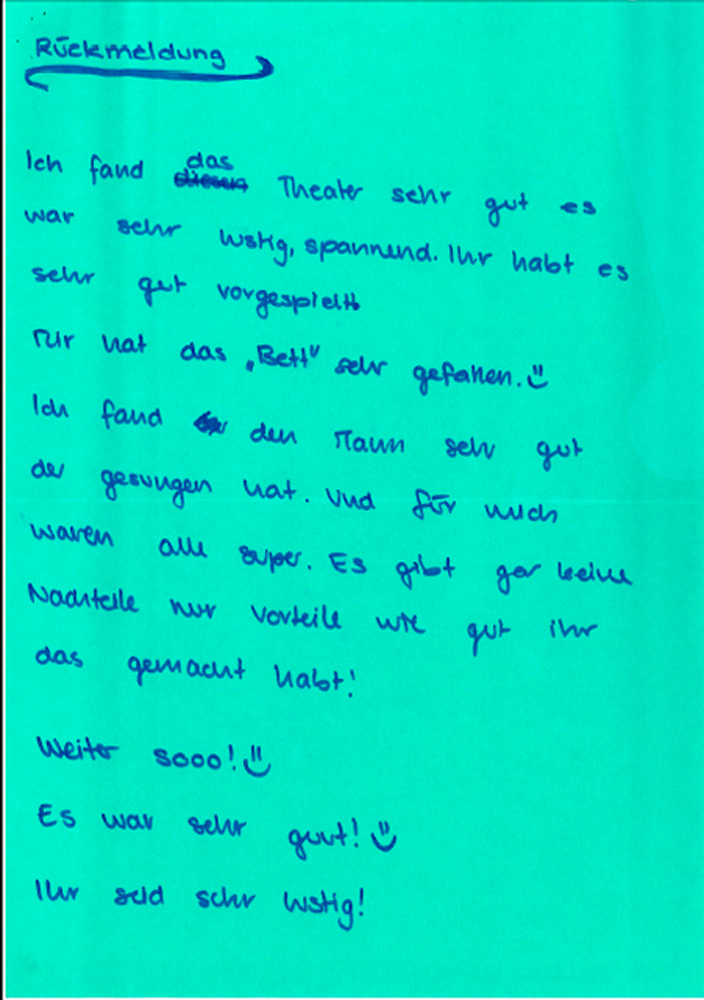 Rückmeldung
Ich fand das Theater sehr gut es
war sehr lustig, spannend. Ihr habt es
sehr gut vorgespielt
Mir hat das „Bett" sehr gefallen.
Ich fand den Mann sehr gut
der gesungen hat. Und für mich
waren alle super. Es gibt gar keine
Nachteile nur Vorteile wie gut ihr
das gemacht habt!
Weiter sooo!
Es war sehr guut!
Ihr seid sehr lustig!